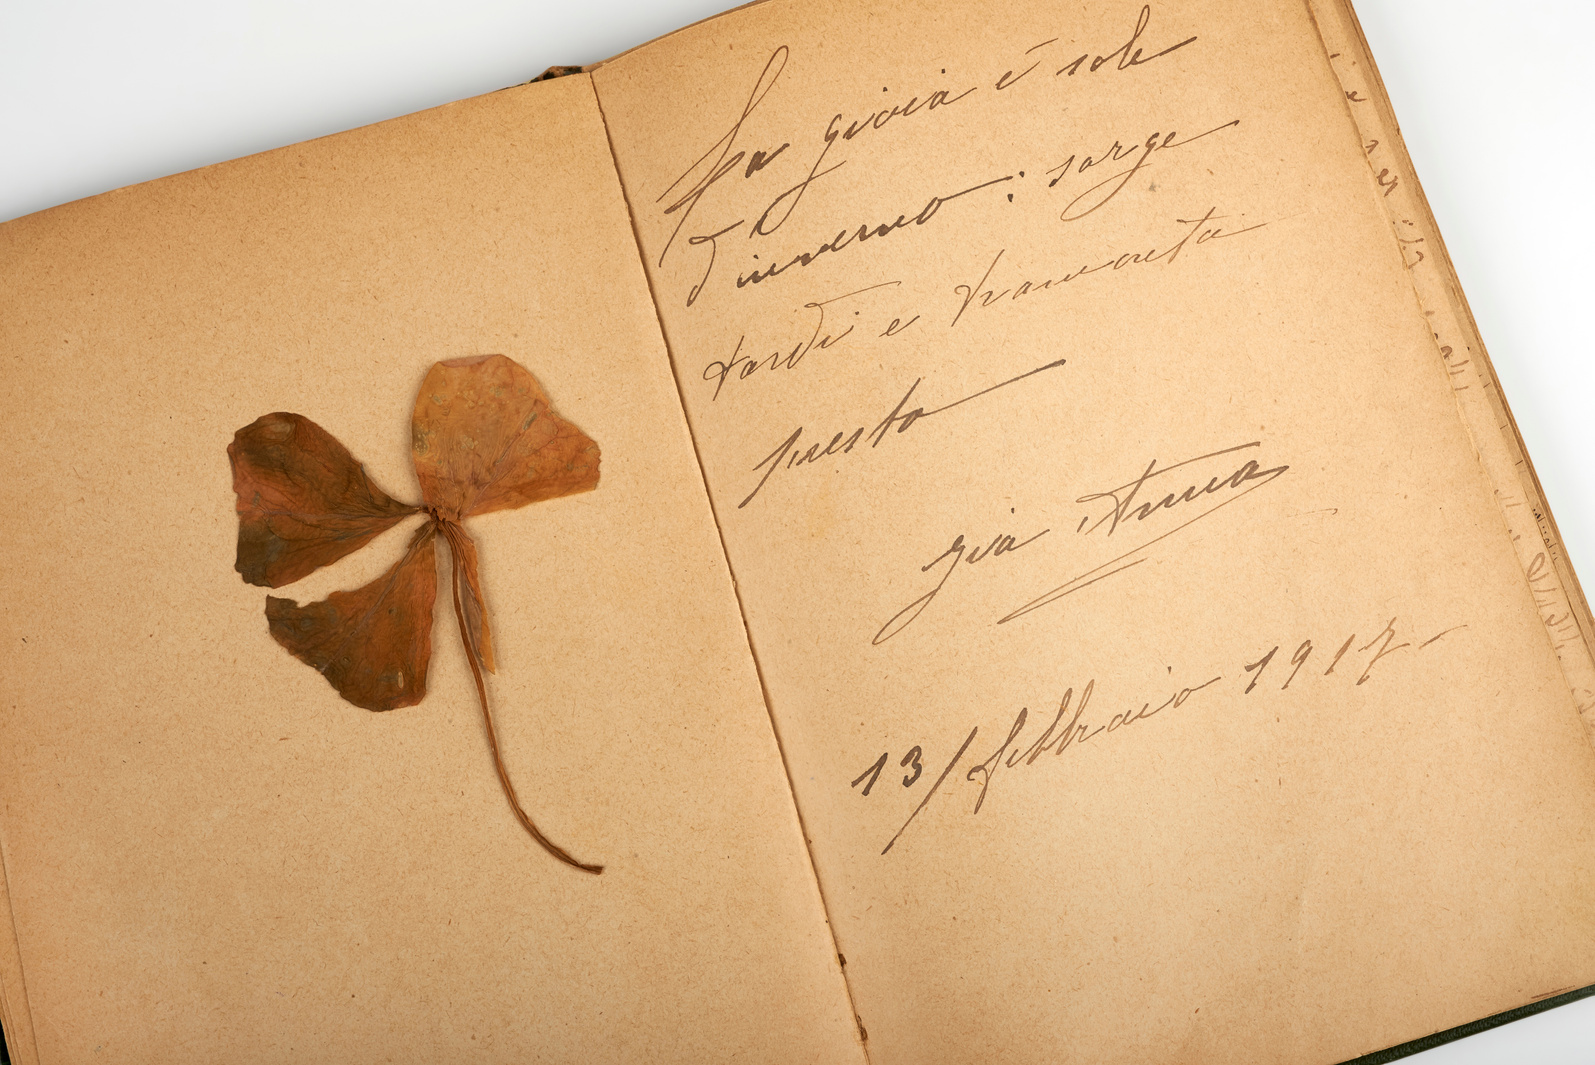 La gioia è sole
d'inverno: sorge
tardi e tramonta
presto
zia Anna
13/febbraio 1917-